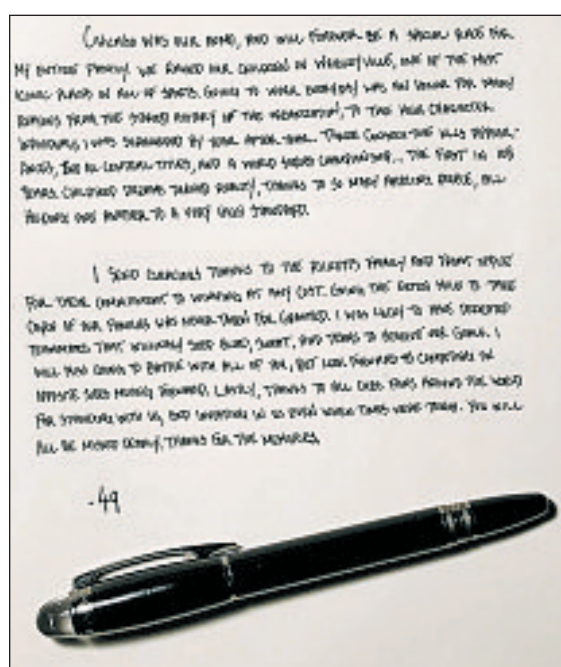 CHICAGO WAS OUR HOME, AND WILL FOREVER BE A SPECIAL PLACE FOR
MY ENTIRE FAMILY. WE RAISED OUR CHILDREN IN WRIGLEYVILLE, ONE OF THE MOST
ICONIC PLACES IN ALL OF SPORTS. GOING TO WORK EVERYDAY WAS AN HONOR FOR MANY
REASONS FROM THE STORIED HISTORY OF THE ORGANIZATION, TO THE HIGH CHARACTER
INDIVIDUALS I WAS SURROUNDED BY YEAR AFTER YEAR. THREE CONSECUTIVE NLCS APPEAR-
ANCES, TWO NL CENTRAL TITLES, AND A WORLD SERIES CHAMPIONSHIP... THE FIRST IN 108
YEARS. CHILDHOOD DREAMS TURNED REALITY, THANKS TO SO MANY AMAZING PEOPLE, ALL
HOLDING ONE ANOTHER TO A VERY HIGH STANDARD.
I SEND GRACIOUS THANKS TO THE RICKETTS FAMILY AND FRONT OFFICE
FOR THEIR COMMITMENT TO WINNING AT ANY COST. GOING THE EXTRA MILE TO TAKE
CARE OF OUR FAMILIES WAS NEVER TAKEN FOR GRANTED. I WAS LUCKY TO HAVE DEDICATED
TEAMMATES THAT WILLINGLY SHED BLOOD, SWEAT, AND TEARS TO ACHIEVE OUR GOALS. I
WILL MISS GOING TO BATTLE WITH ALL OF YOU, BUT LOOK FORWARD TO COMPETING ON
OPPOSITE SIDES MOVING FORWARD. LASTLY, THANKS TO ALL CUBS FANS AROUND THE WORLD
FOR STANDING WITH US, AND US EVEN WHEN TIMES WERE TOUGH. YOU WILL
ALL BE MISSED DEARLY, THANKS FOR THE MEMORIES.
-49